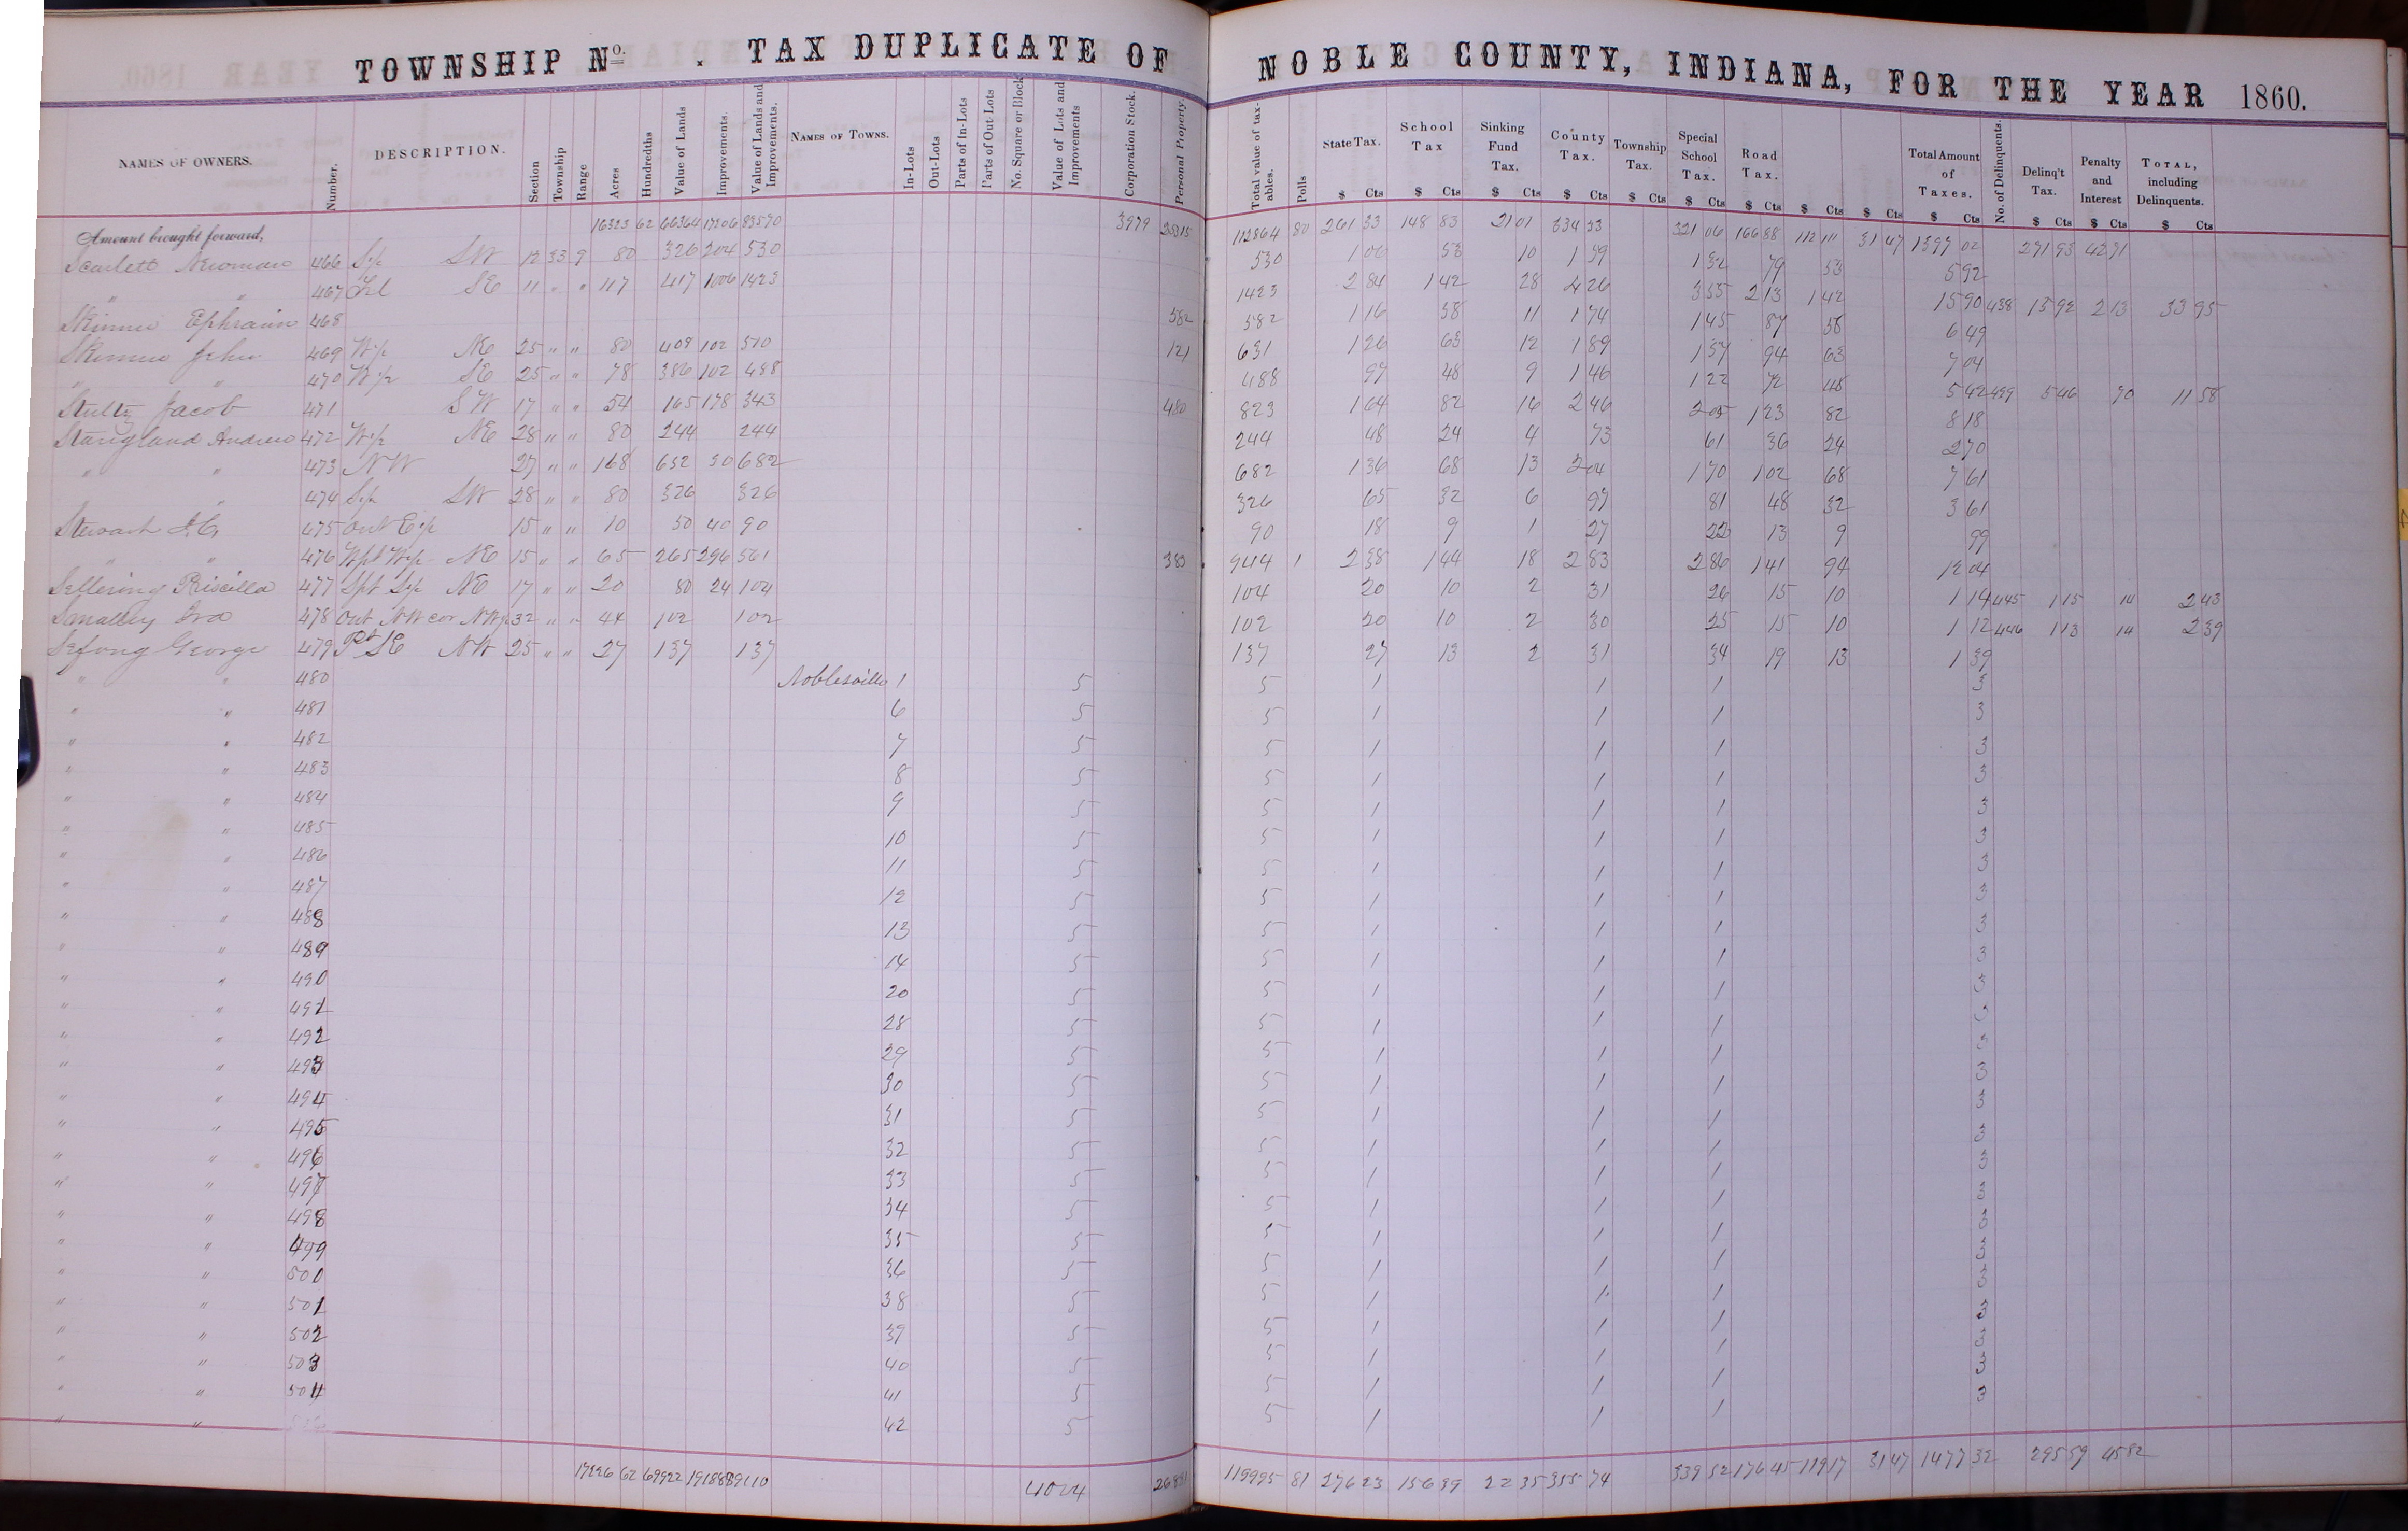 TOWNSHIP No. . TAX DUPLICATE OF NOBLE COUNTY, INDIANA, FOR THE YEAR 1860.
NAMES OF OWNERS. Number. DESCRIPTION. Section Township Range Acres Hundredths Value of Lands Improvements. Value of Lands and Improvements. NAMES OF TOWNS. In-Lots Out-Lots Parts of In-Lots Parts of Out-Lots No. Square or Block Value of Lots and Improvements Corporation Stock. Personal Property. Total value of taxables. Polls State Tax. School Tax Sinking Fund Tax. County Tax. Township Tax. Special School Tax. Road Tax. Total Amount of Taxes. No. of Delinquents. Delinq't Tax. Penalty and Interest TOTAL, including Delinquents.
$ Cts $ Cts $ Cts $ Cts $ Cts $ Cts $ Cts $ Cts $ Cts $ Cts $ Cts $ Cts $ Cts
Amount brought forward, 16323 62 66364 17206 83570 3979 25315 112864 80 261 33 148 83 21 01 334 33 321 06 166 68 112 11 31 47 1397 02 291 93 42 71
Scarlett Newman 466 S½ SW 12 33 9 80 326 204 530 530 1 06 53 10 1 59 1 32 79 53 5 92
" " 467 Frl SE 11 " " 117 417 1006 1423 1423 2 84 1 42 28 4 26 3 55 2 13 1 42 15 90 438 15 92 2 13 33 95
Skinner Ephraim 468 582 582 1 16 58 11 1 74 1 45 87 58 6 49
Skinner John 469 W½ NE 25 " " 80 408 102 510 121 631 1 26 63 12 1 89 1 57 94 63 7 04
" " 470 W½ SE 25 " " 78 386 102 488 488 97 48 9 1 46 1 22 72 48 5 42 439 5 46 70 11 58
Stultz Jacob 471 SW 17 " " 54 165 178 343 480 823 1 64 82 16 2 46 2 05 1 23 82 8 18
Stangland Andrew 472 W½ NE 28 " " 80 244 244 244 48 24 4 73 61 36 24 2 70
" " 473 NW 27 " " 168 652 30 682 682 1 36 68 13 2 04 1 70 1 02 68 7 61
" 474 S½ SW 28 " " 80 326 326 326 65 32 6 97 81 48 32 3 61
Stewart 475 Out E½ 15 " " 10 50 40 90 90 18 9 1 27 22 13 9 99
" " 476 Wpt W½ NE 15 " " 65 265 296 561 383 944 1 2 38 1 44 18 2 83 2 86 1 41 94 12 04
Sellering Priscilla 477 Spt S½ NE 17 " " 20 80 24 104 104 20 10 2 31 26 15 10 1 14 445 1 15 14 2 43
Smalley Ira 478 Out NW cor NW¼ 32 " " 44 102 102 102 20 10 2 30 25 15 10 1 12 446 1 13 14 2 39
Sefong George 479 Pt SE NW 25 " " 27 137 137 137 27 13 2 31 34 19 13 1 39
" " 480 Noblesville 1 5 5 1 1 1 3
" " 481 6 5 5 1 1 1 3
" " 482 7 5 5 1 1 1 3
" " 483 8 5 5 1 1 1 3
" " 484 9 5 5 1 1 1 3
" " 485 10 5 5 1 1 1 3
" " 486 11 5 5 1 1 1 3
" " 487 12 5 5 1 1 1 3
" " 488 13 5 5 1 1 1 3
" " 489 14 5 5 1 1 1 3
" " 490 20 5 5 1 1 1 3
" " 491 28 5 5 1 1 1 3
" " 492 29 5 5 1 1 1 3
" " 493 30 5 5 1 1 1 3
" " 494 31 5 5 1 1 1 3
" " 495 32 5 5 1 1 1 3
" " 496 33 5 5 1 1 1 3
" " 497 34 5 5 1 1 1 3
" " 498 35 5 5 1 1 1 3
" " 499 36 5 5 1 1 1 3
" " 500 38 5 5 1 1 1 3
" " 501 39 5 5 1 1 1 3
" " 502 40 5 5 1 1 1 3
" " 503 41 5 5 1 1 1 3
" " 504 42 5 5 1 1 1 3
17226 62 69922 19188 89110 4024 26881 119995 81 276 23 156 39 22 35 355 74 339 52 176 45 119 17 31 47 1477 32 295 59 45 82